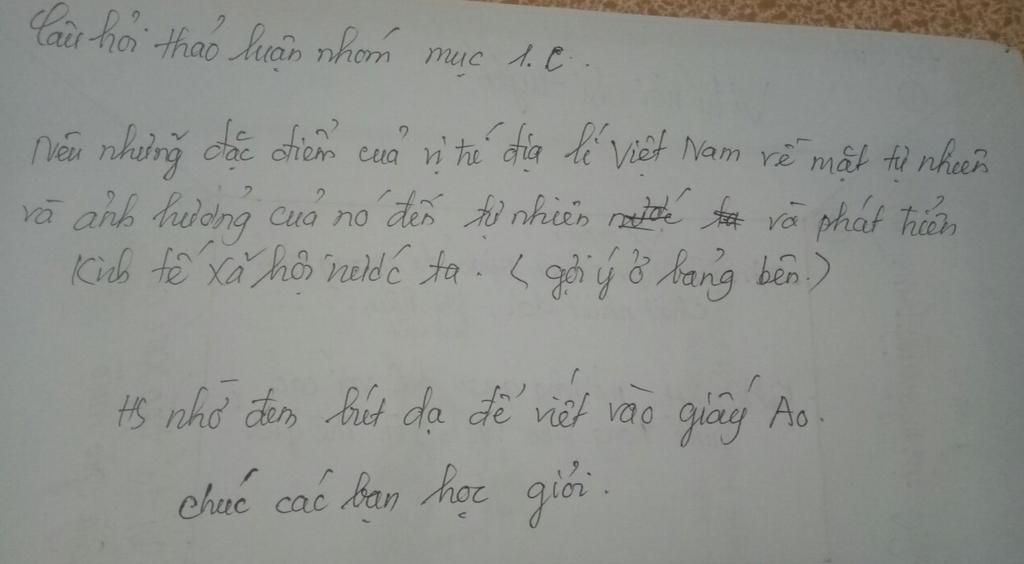 Câu hỏi thảo luận nhóm mục 1.c.
Nêu những đặc điểm của vị trí địa lí Việt Nam về mặt tự nhiên
và ảnh hưởng của nó đến tự nhiên nước ta và phát triển
Kinh tế xã hội nước ta. ( gợi ý ở bảng bên.)
HS nhớ đem bút dạ để viết vào giấy Ao.
chúc các bạn học giỏi.